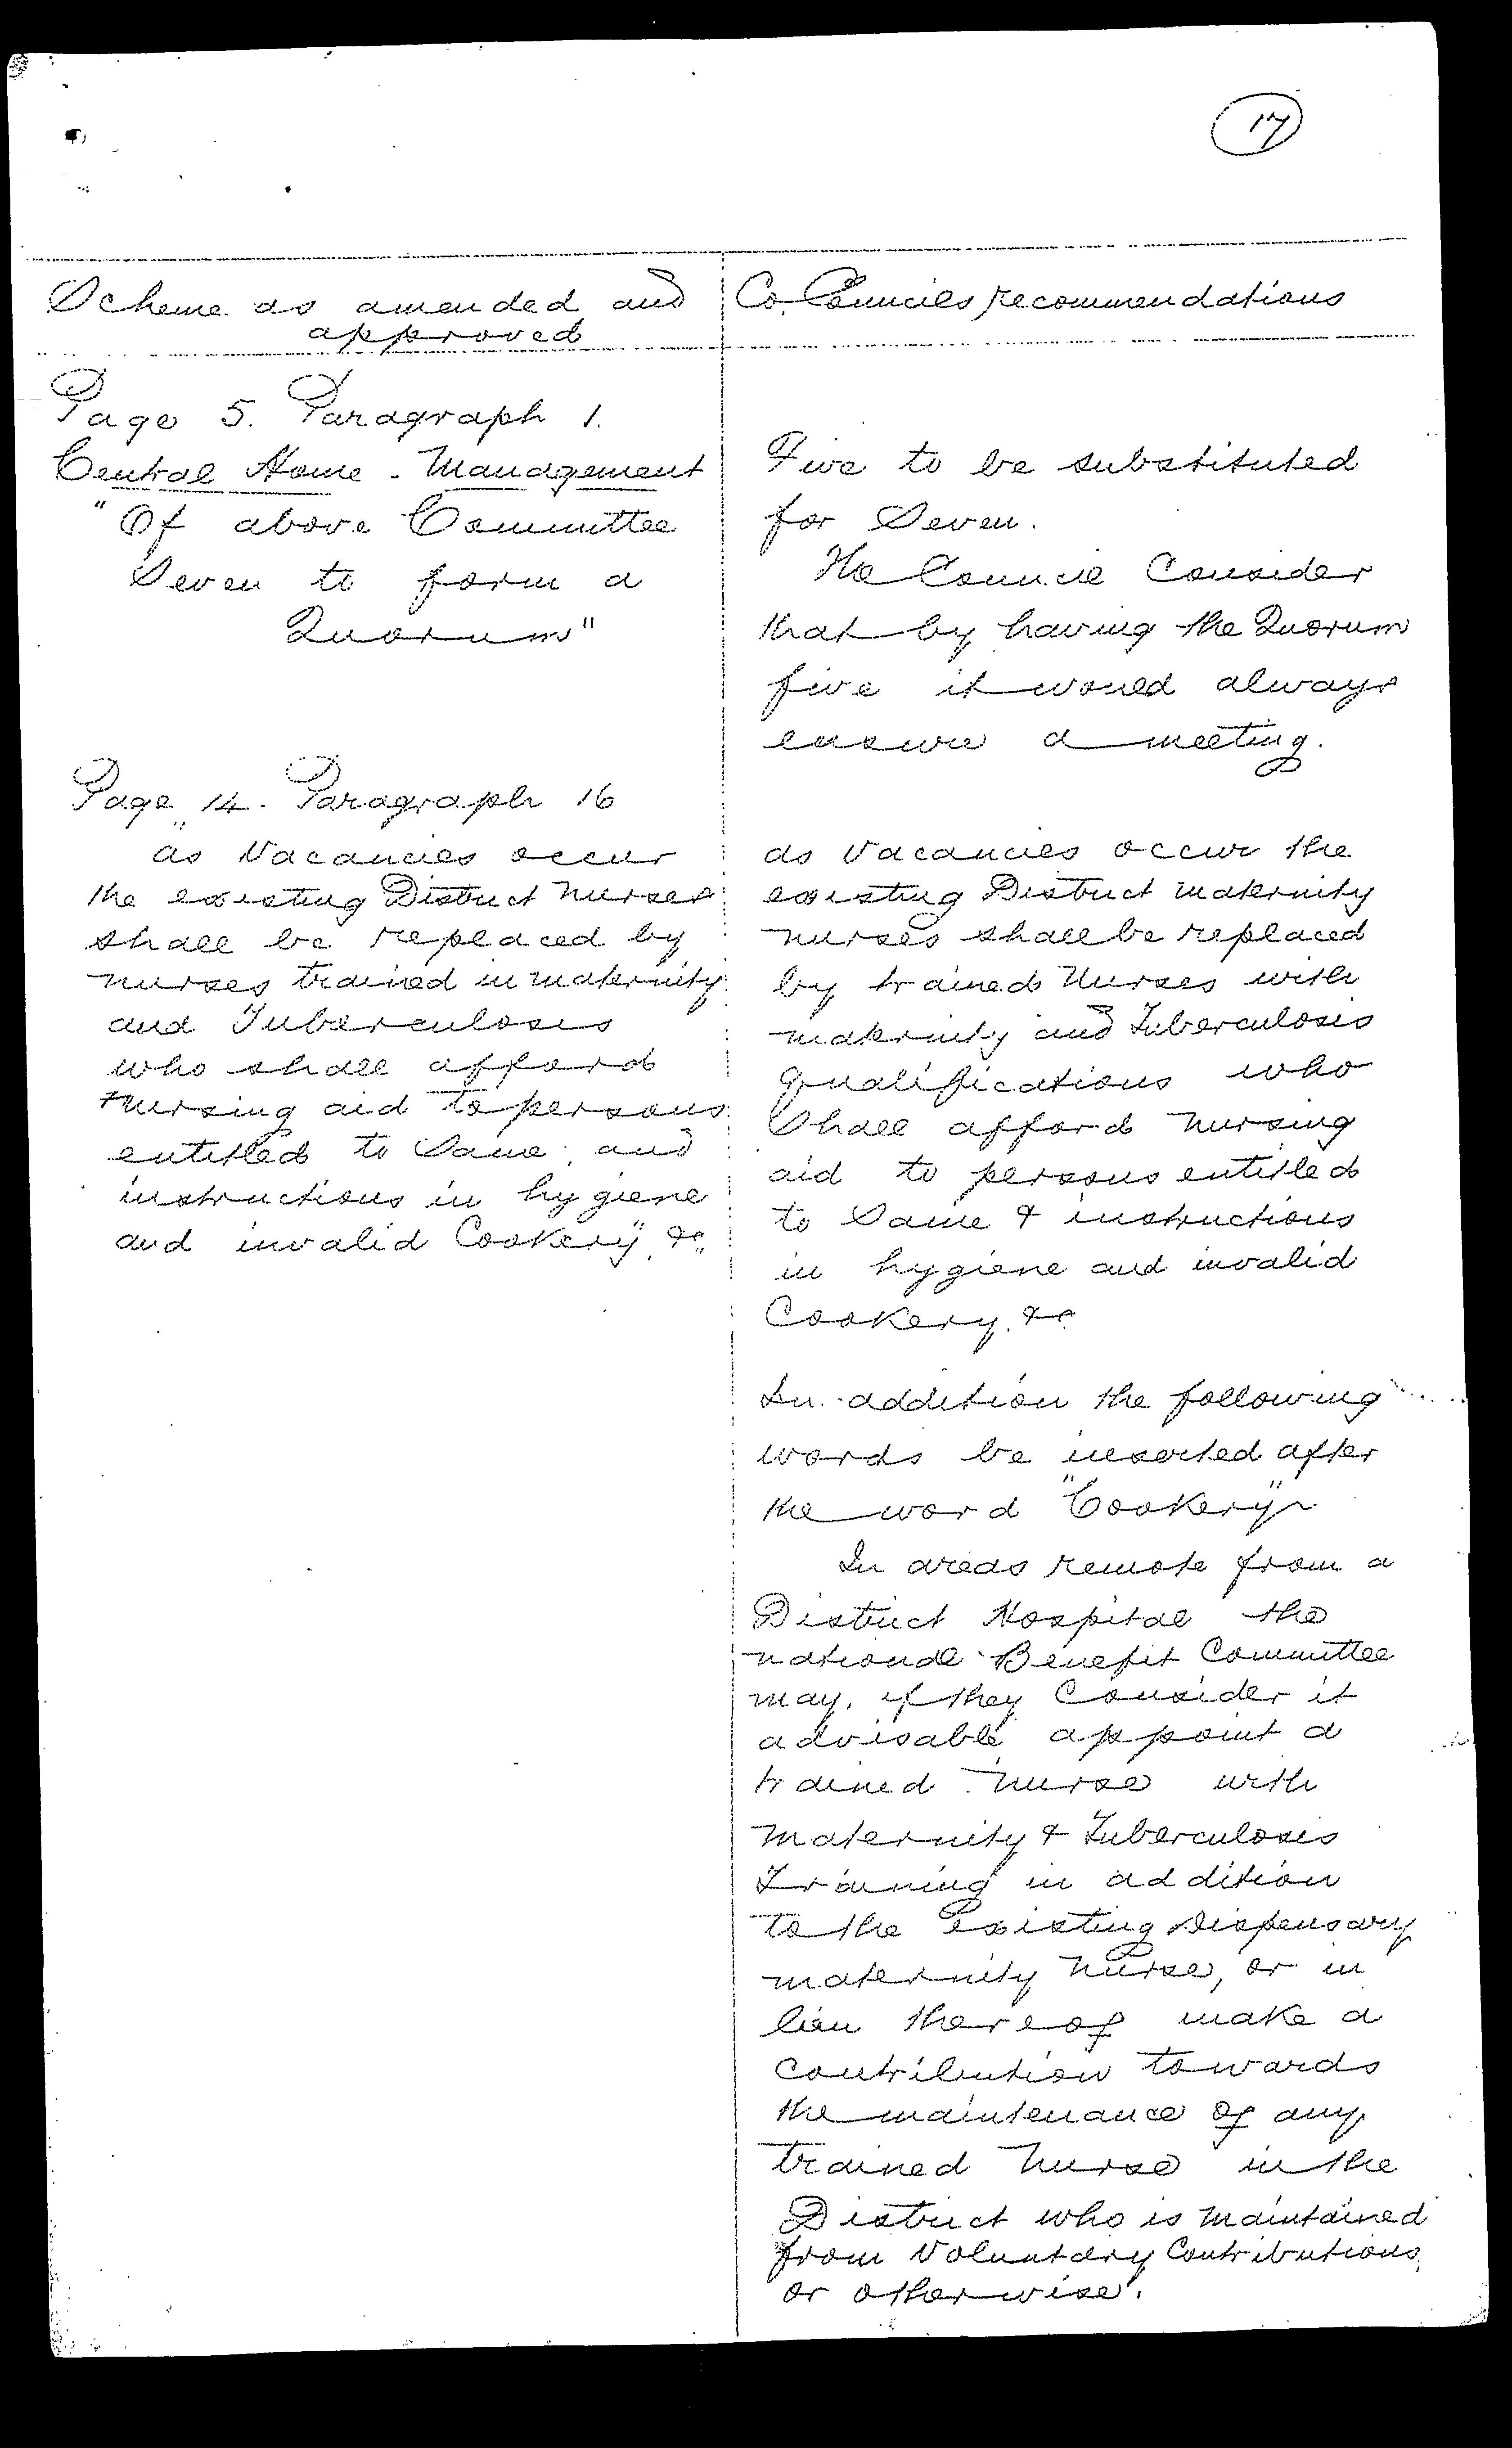 17
Scheme as amended and
approved
Co. Councils recommendations
Page 5. Paragraph 1.
Central Home - Management
"Of above Committee
Seven to form a
Quorum"
Five to be substituted
for Seven.
The Council Consider
that by having the Quorum
five it would always
ensure a meeting.
Page 14. Paragraph 16
"as Vacancies occur
the existing District Nurses
shall be replaced by
nurses trained in maternity
and Tuberculosis
who shall afford
nursing aid to persons
entitled to Same, and
instructions in hygiene
and invalid Cookery" &c
as Vacancies occur the
existing District maternity
nurses shall be replaced
by trained Nurses with
maternity and Tuberculosis
qualifications who
Shall afford nursing
aid to persons entitled
to Same & instructions
in hygiene and invalid
Cookery &c
In addition the following
words be inserted after
the word "Cookery"
In areas remote from a
District Hospital the
national Benefit Committee
may, if they Consider it
advisable appoint a
trained nurse with
maternity & Tuberculosis
Training in addition
to the existing Dispensary
maternity Nurse, or in
lieu thereof make a
contribution towards
the maintenance of any
trained nurse in the
District who is maintained
from Voluntary Contributions
or otherwise.